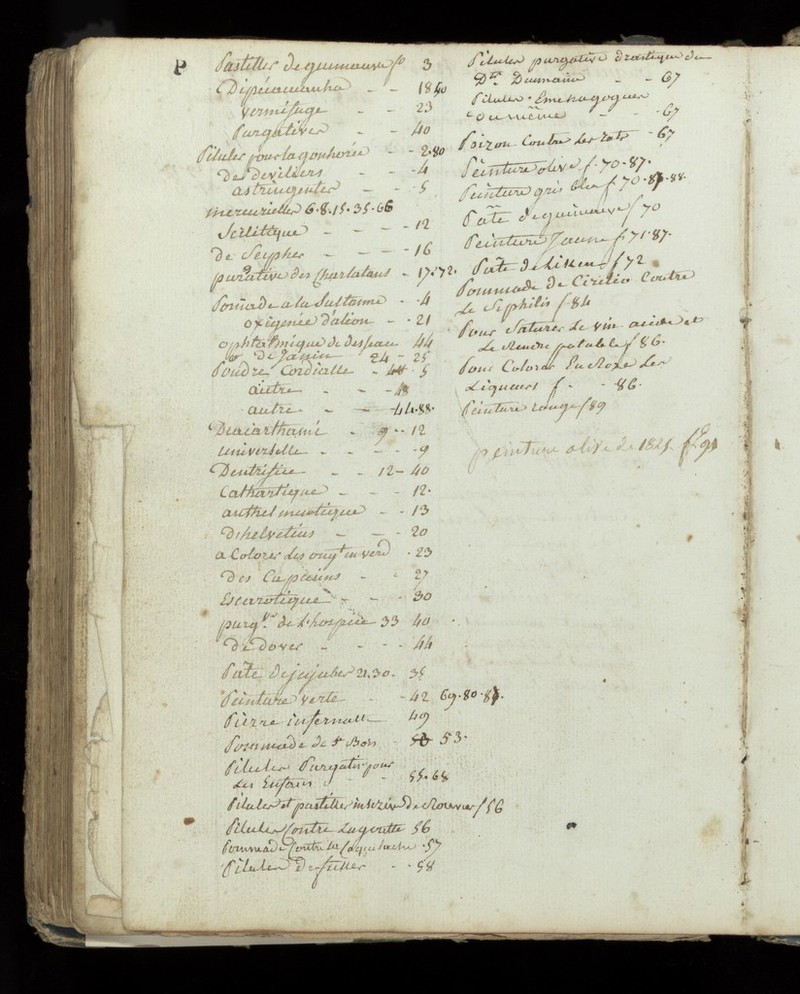 P
Pastilles de guimauve fo 3
D'ipécacuanha - - 18 40
vermifuge - - 23
Purgatives - - 40
Pilules pour la gonhorée - - 2.80
De develiers - - - 4
astringentes - - - 5
mercurielles 6.8.15.35.66
Scillitique - - - - 12
De Seypher - - - 16
purgative des Charlatans - 17.72.
Pomade a la Sultanne - - 4
oxigenée d'alion - - 21
ophtalmique de Despeau 44
De Janin 24 - 25
Poudre Cordialle - 5
autre - - - 48
autre - - 44.88.
Diacarthami - 9 - - 12
universelle - - - - 9
Dentrifice - - 12 - 40
Cathartique - - - 12.
anthelmentique - - 13
D'helvetius - - - 20
a Colorer les ongt en verd - 23
Des Capucins - - 27
Escarotique - - - 30
purgve de L'hospice 33 40
De Dover - - - - 44
Pate de jujubes 21.30. 35
Peinture verte - - 42 69.80.87.
Pierre infernalle 49
Pommade de St Bois - 53.
Pilules Purgatis pour
Les Enfans - - - 55.68
Pilules et pastilles de Rouvier f 56
Pilules Contre La goutte 56
Pommade Contre La Coqueluche . 57
Pilules De fuller - - 58
Pilules purgative drastique du
Dr. Dumaine - - 67
Pilules Emenagogues
ou même - - - 67
Poizon Contre Les rats - 67
Peinture olive f. 70.87.
Peinture gris bleu f 70.87.88.
Pate de guimauve f 70
Peinture Jaune f. 71.87.
Pate de Liken f 72
Pommade De Cirilio Contre
Le Siphilis f 84
Pour Saturer Le vin acide et
Le Rendre potable f 86.
Pour Colorer En Roze Les
Liqueurs f. - - 86.
Peinture rouge f 89
peinture olive de 1821 fo 91